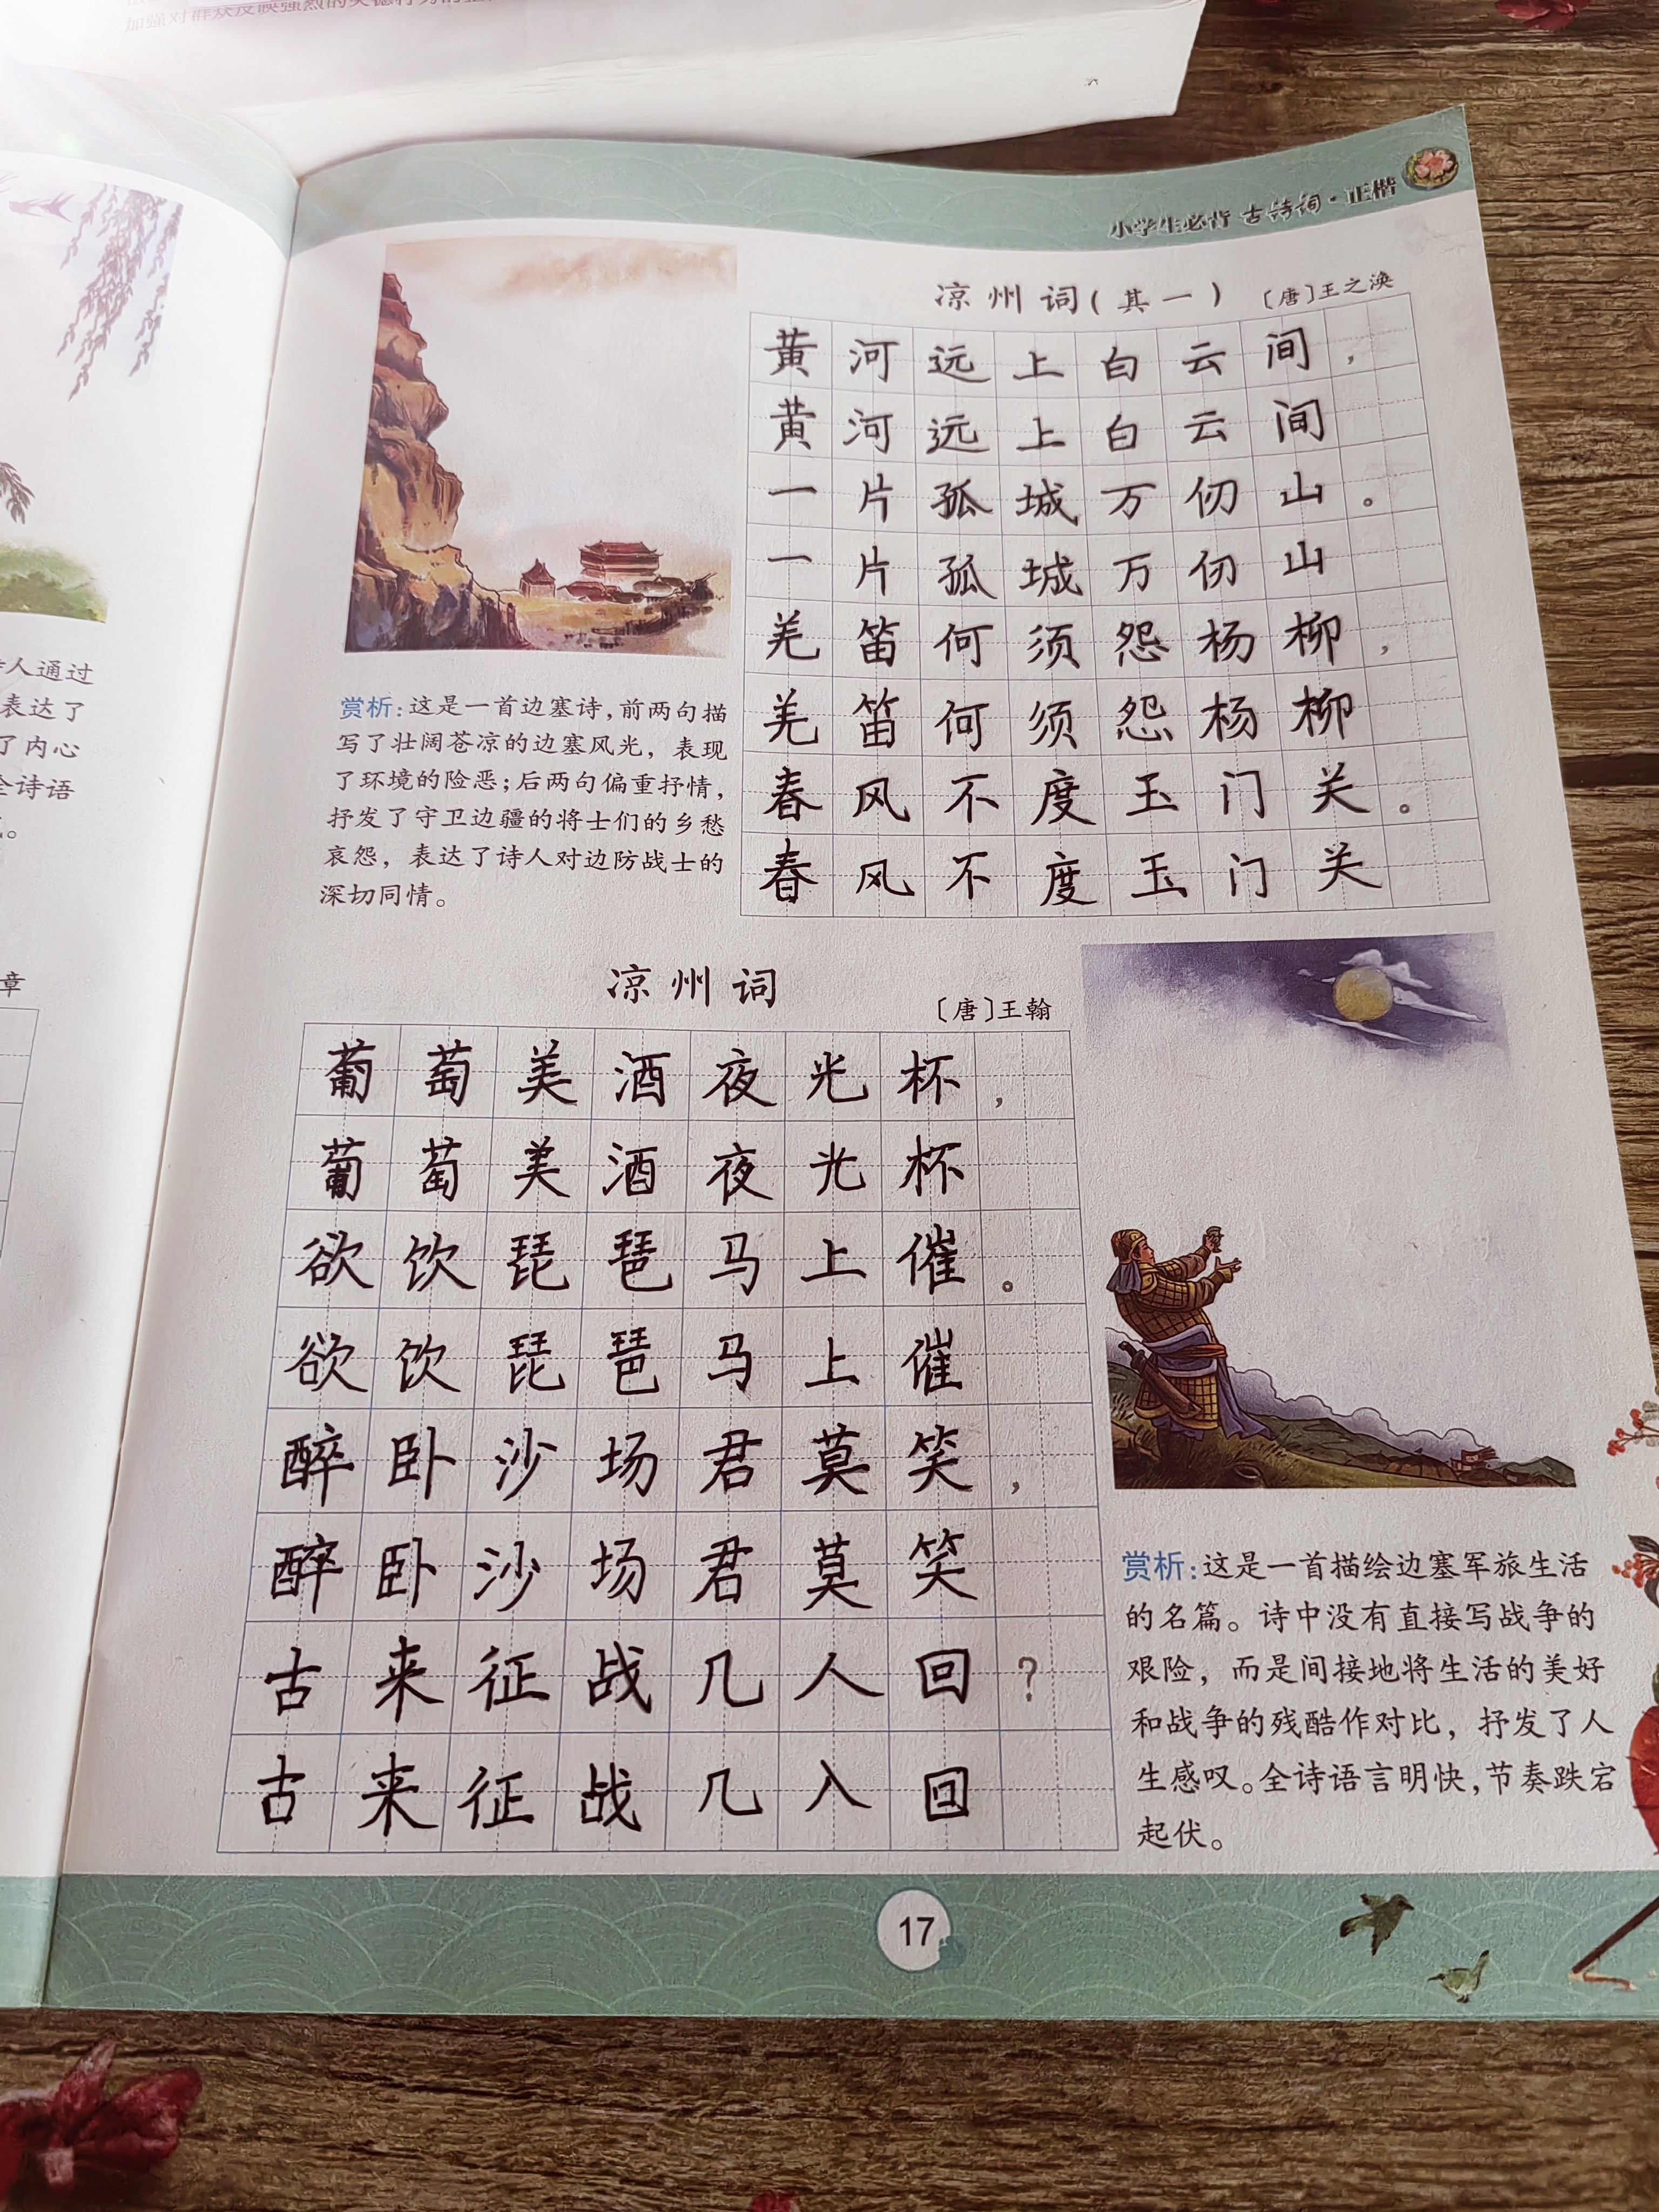 加强对群众反映强烈的
人通过
表达了
了内心
全诗语
章
小学生必背 古诗词·正楷
凉州词(其一) 〔唐〕王之涣
黄河远上白云间，
黄河远上白云间
一片孤城万仞山。
一片孤城万仞山
羌笛何须怨杨柳，
羌笛何须怨杨柳
春风不度玉门关。
春风不度玉门关
赏析:这是一首边塞诗,前两句描
写了壮阔苍凉的边塞风光，表现
了环境的险恶;后两句偏重抒情,
抒发了守卫边疆的将士们的乡愁
哀怨，表达了诗人对边防战士的
深切同情。
凉州词
〔唐〕王翰
葡萄美酒夜光杯，
葡萄美酒夜光杯
欲饮琵琶马上催。
欲饮琵琶马上催
醉卧沙场君莫笑，
醉卧沙场君莫笑
古来征战几人回？
古来征战几入回
赏析:这是一首描绘边塞军旅生活
的名篇。诗中没有直接写战争的
艰险，而是间接地将生活的美好
和战争的残酷作对比，抒发了人
生感叹。全诗语言明快,节奏跌宕
起伏。
17